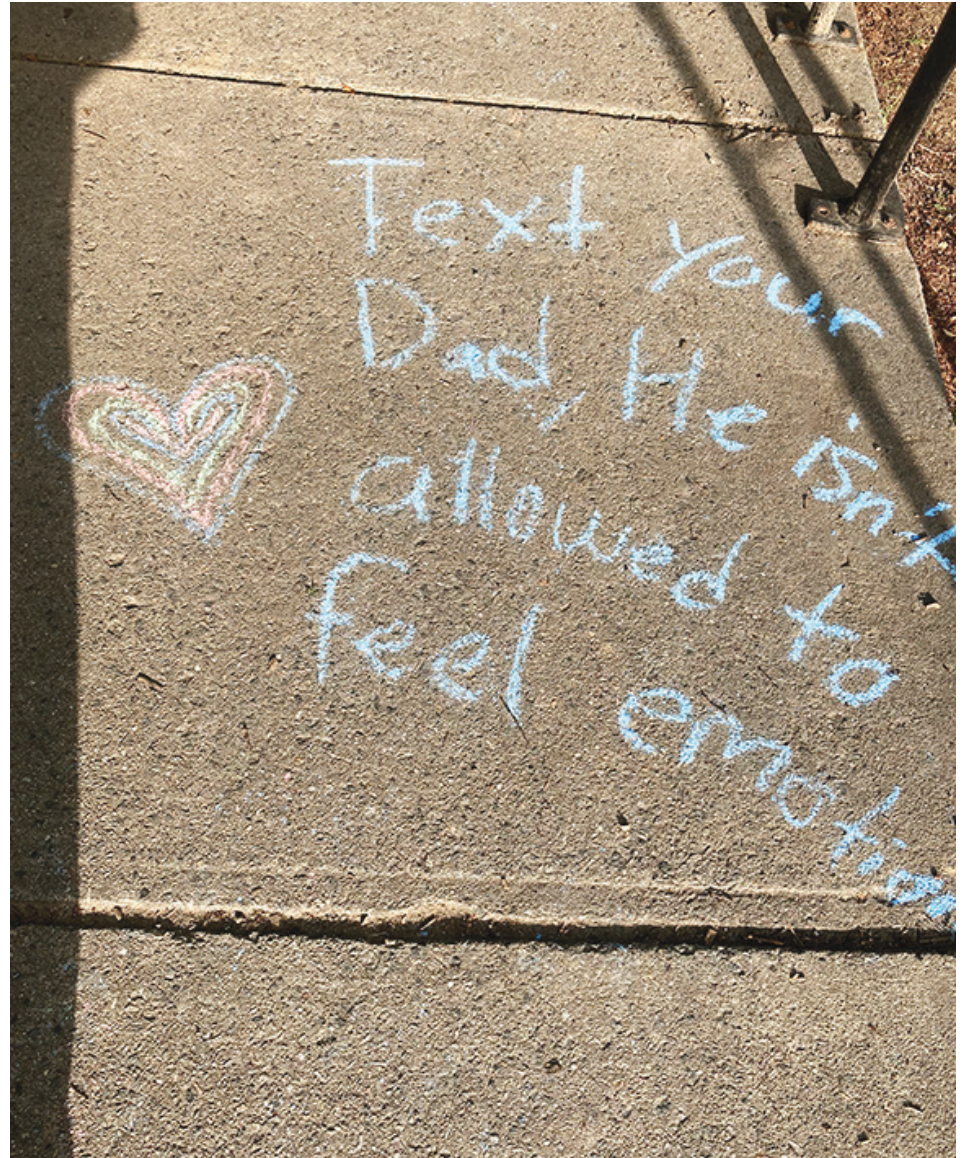 Text your
Dad, He isnt
allowed to
feel emotion